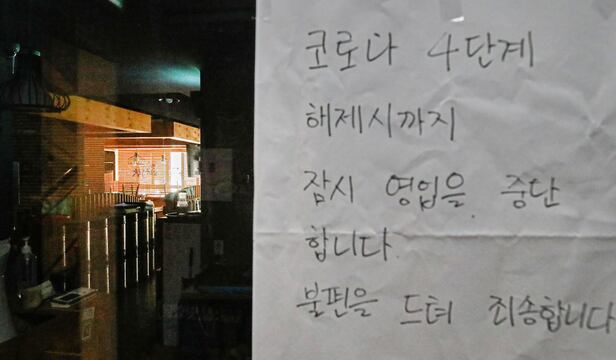 코로나 4단계
해제시까지
잠시 영업을 중단
합니다.
불편을 드려 죄송합니다